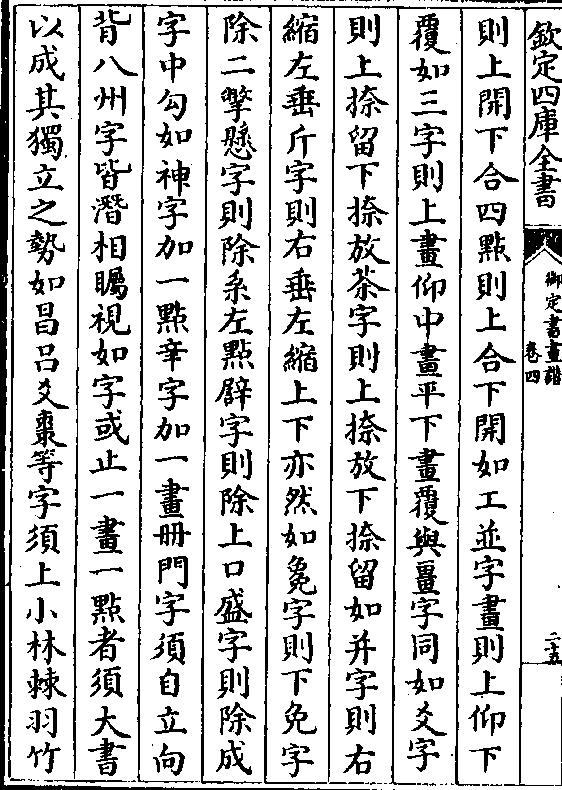 欽定四庫全書
御定書畫譜
卷四
二十五
則上開下合四點則上合下開如工並字畫則上仰下
覆如三字則上畫仰中畫平下畫覆與畺字同如爻字
則上捺留下捺放茶字則上捺放下捺留如并字則右
縮左垂斤字則右垂左縮上下亦然如㲋字則下免字
除二撆懸字則除系左點辟字則除上口盛字則除成
字中勾如神字加一點幸字加一畫冊門字須自立向
背八州字皆潛相矚視如字或止一畫一點者須大書
以成其獨立之勢如昌呂爻棗等字須上小林棘羽竹